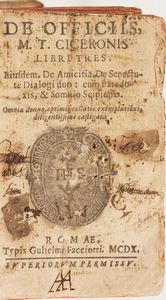 DE OFFICIIS
M. T. CICERONIS
LIBRI TRES.
Eiusdem, De Amicitia, De Senectu-
te Dialogi duo: cum Parado-
xis, & Somnio Scipionis.
Omnia denuo, optimis collatis exemplaribus,
diligentissimè castigata.
ROMAE,
Typis Gulielmi Facciotti. MDCX.
SVPERIORVM PERMISSV.